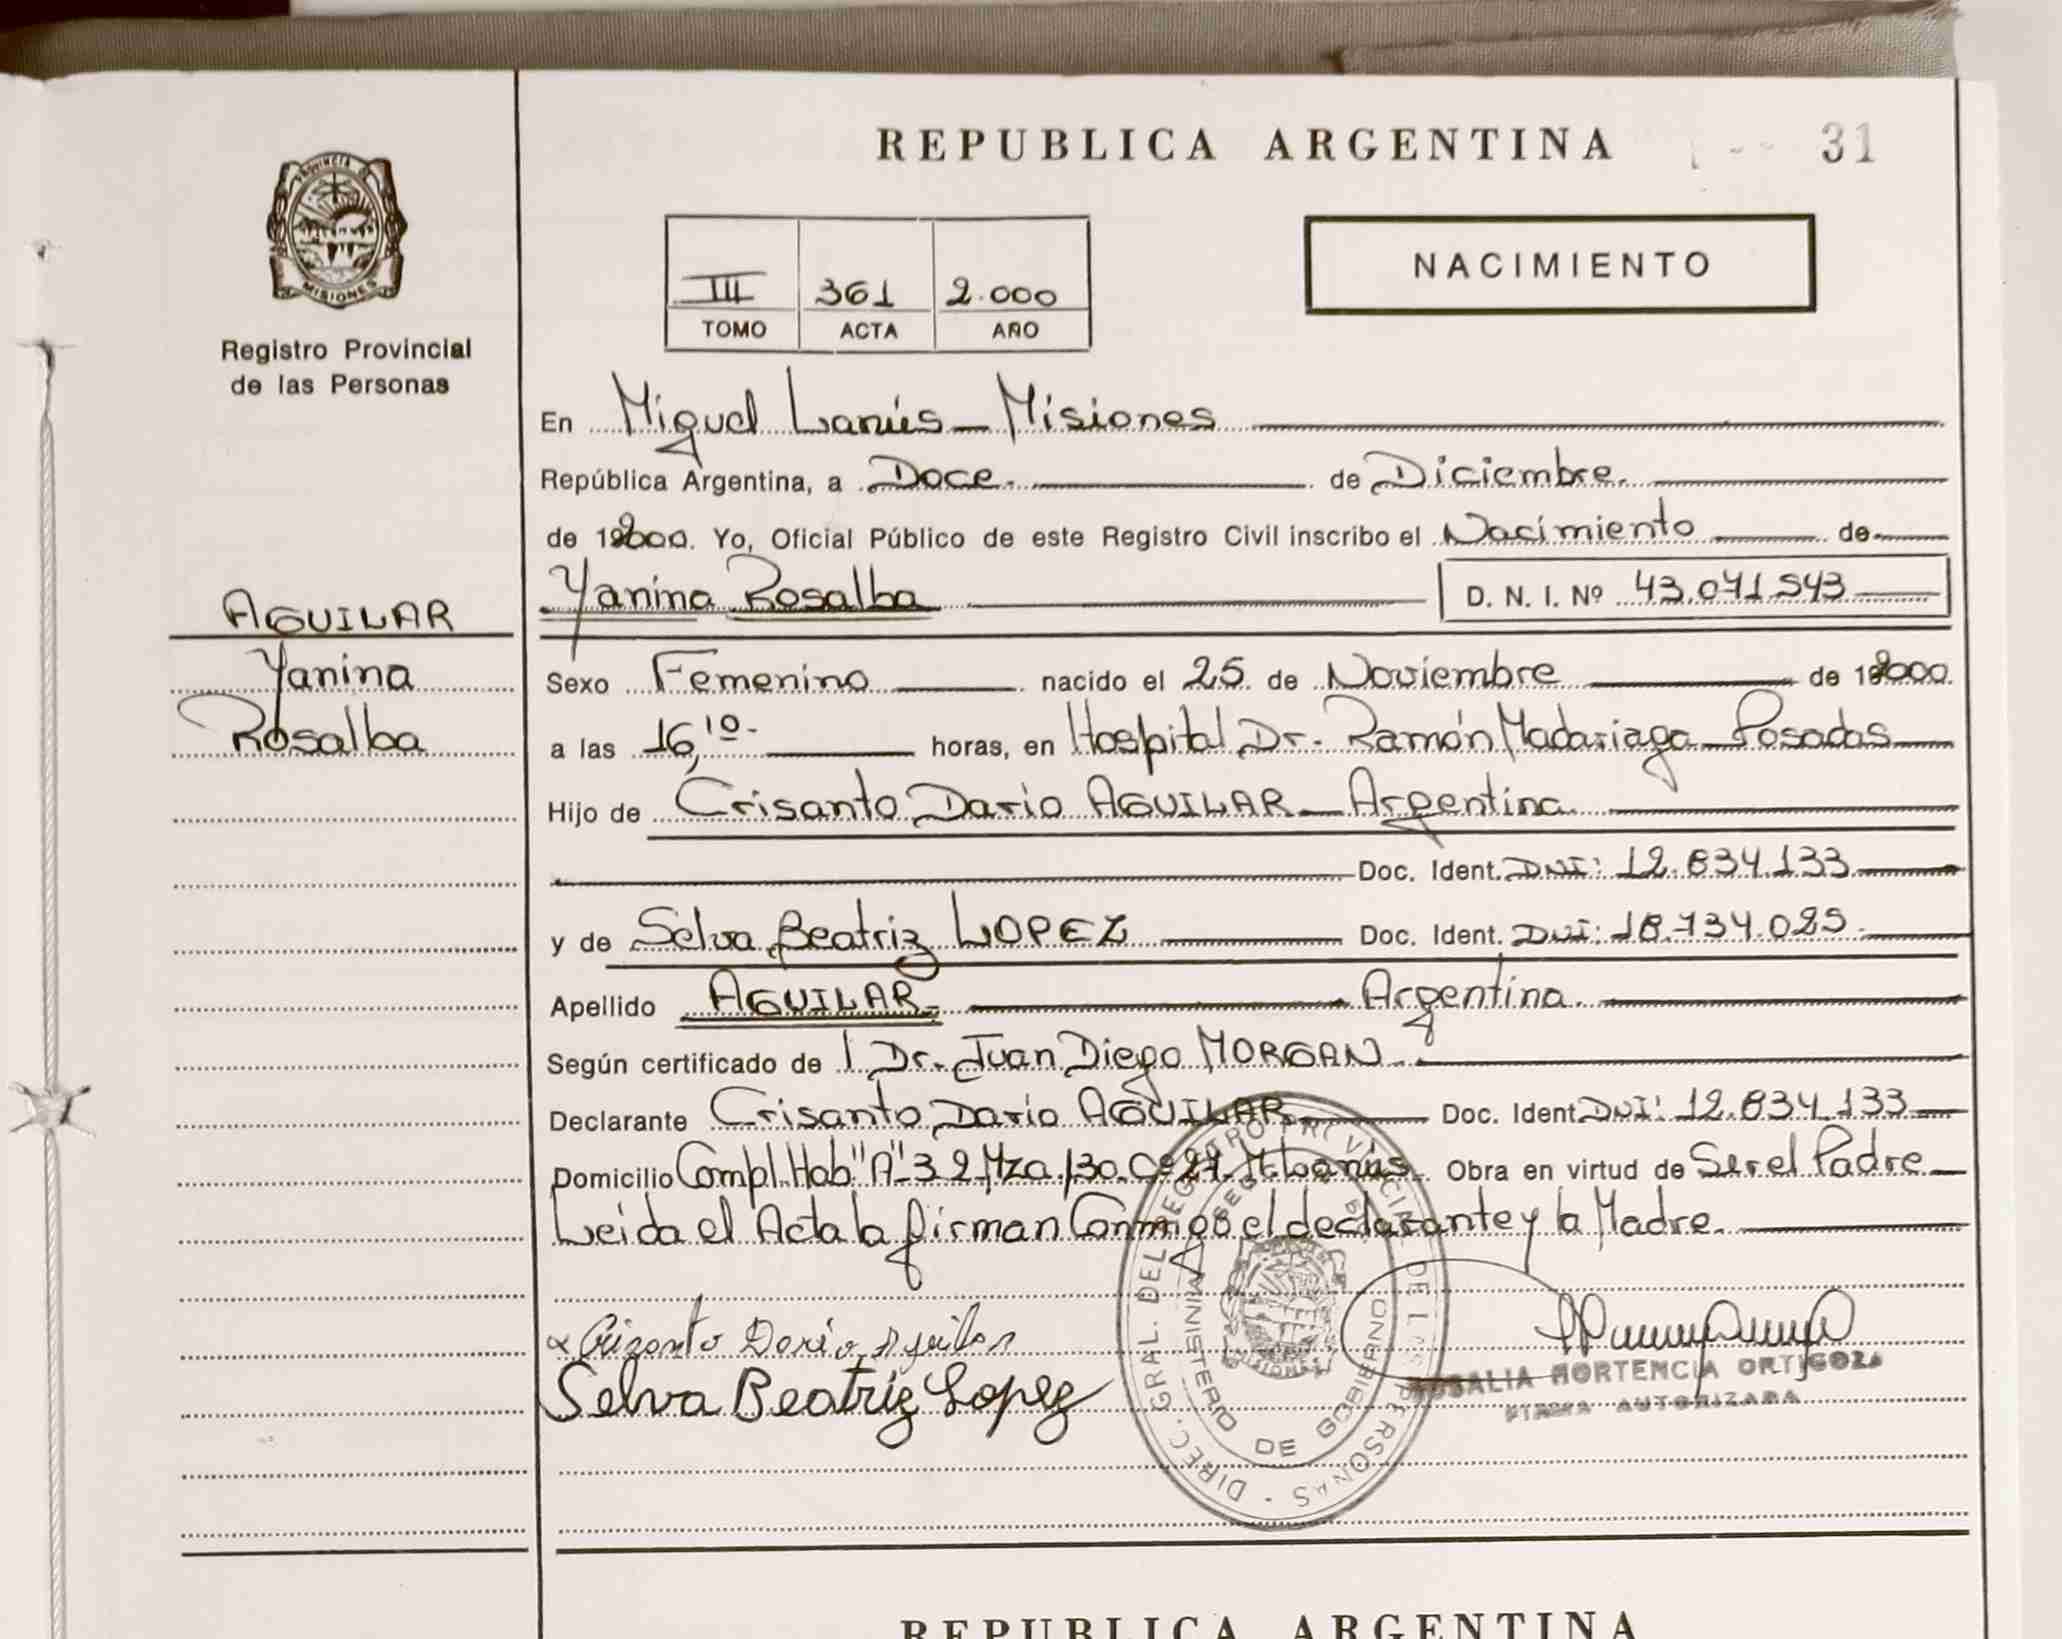 REPUBLICA ARGENTINA
31
PROVINCIA DE
MISIONES
Registro Provincial
de las Personas
III 361 2.000
TOMO ACTA AÑO
NACIMIENTO
En Miguel Lanús - Misiones
República Argentina, a Doce. de Diciembre.
de 2000. Yo, Oficial Público de este Registro Civil inscribo el Nacimiento de
AGUILAR
Yanina
Rosalba
Yanina Rosalba D. N. I. Nº 43.071.543
Sexo Femenino nacido el 25 de Noviembre de 2000.
a las 16,10- horas, en Hospital Dr. Ramón Madariaga - Posadas
Hijo de Crisanto Dario AGUILAR - Argentina
Doc. Ident. DNI: 12.834.133
y de Selva Beatriz LOPEZ Doc. Ident. DNI: 18.734.025.
Apellido AGUILAR. Argentina.
Según certificado de Dr. Juan Diego MORGAN
Declarante Crisanto Dario AGUILAR Doc. Ident. DNI: 12.834.133
Domicilio Compl. Hab "A" 32 Mza. 130. Cº 27. M. Lanús. Obra en virtud de Ser el Padre
Leida el Acta la firman Conmigo el declarante y la Madre.
Crizanto Dario Aguilar
Selva Beatriz Lopez
DIREC. GRAL. DEL REGISTRO PROVINCIAL DE LAS PERSONAS
MINISTERIO DE GOBIERNO
ROSALIA HORTENCIA ORTIGOZA
FIRMA AUTORIZADA
REPUBLICA ARGENTINA